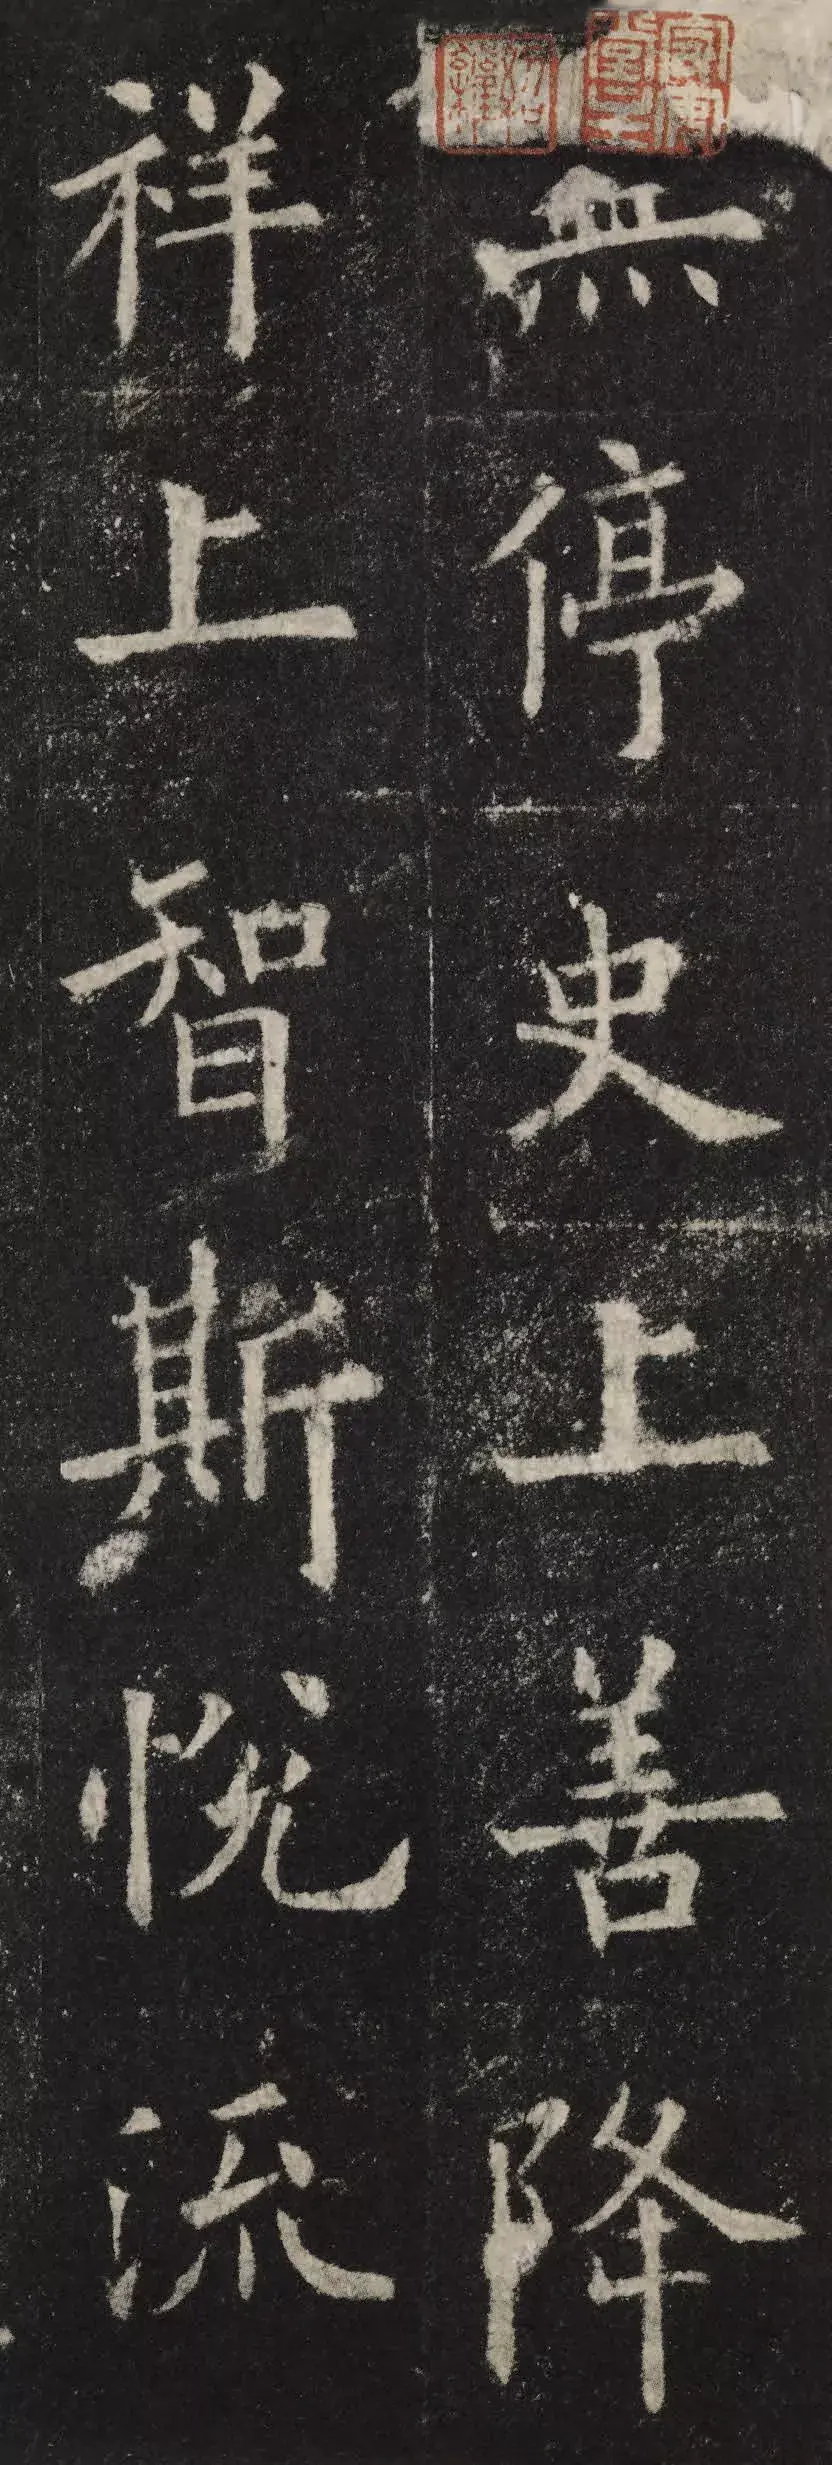 無停史上善降
祥上智斯悦流